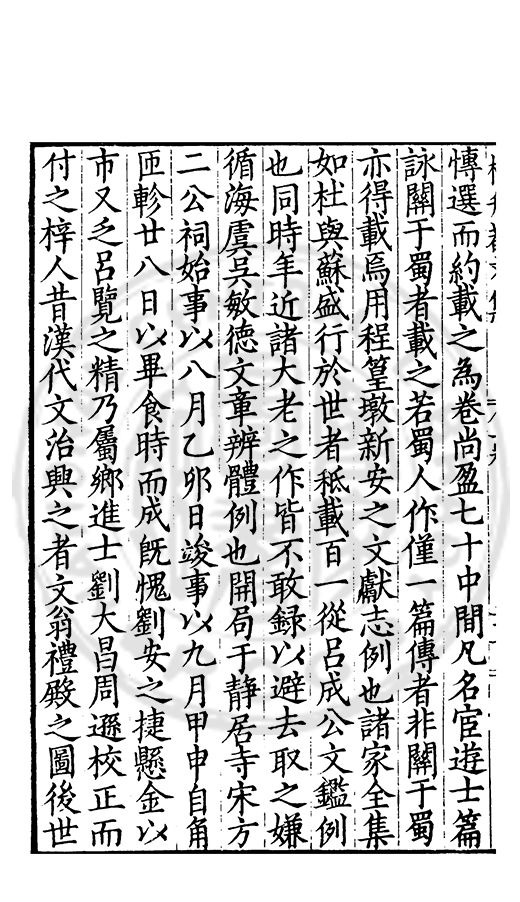 愽選而約載之為卷尚盈七十中間凡名宦遊士篇
詠關于蜀者載之若蜀人作僅一篇傳者非關于蜀
亦得載焉用程篁墩新安之文獻志例也諸家全集
如杜與蘇盛行於世者秪載百一從吕成公文鑑例
也同時年近諸大老之作皆不敢録以避去取之嫌
循海虞吳敏德文章辨體例也開局于静居寺宋方
二公祠始事以八月乙卯日竣事以九月甲申自角
匝軫廿八日以畢食時而成旣愧劉安之捷懸金以
市又乏吕覽之精乃屬鄉進士劉大昌周遜校正而
付之梓人昔漢代文治興之者文翁禮殿之圖後世